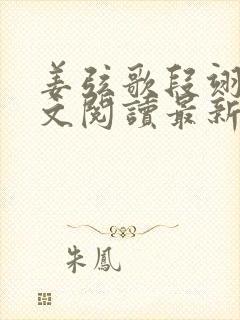 姜弦歌段翊
文閱讀最新
朱鳳